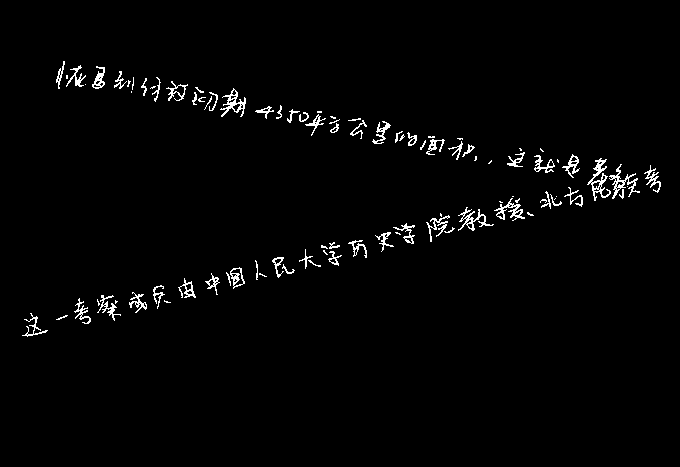 恢复到解放初期4350平方公里的面积，这就是要
这一考察成员由中国人民大学历史学院教授、北方民族考